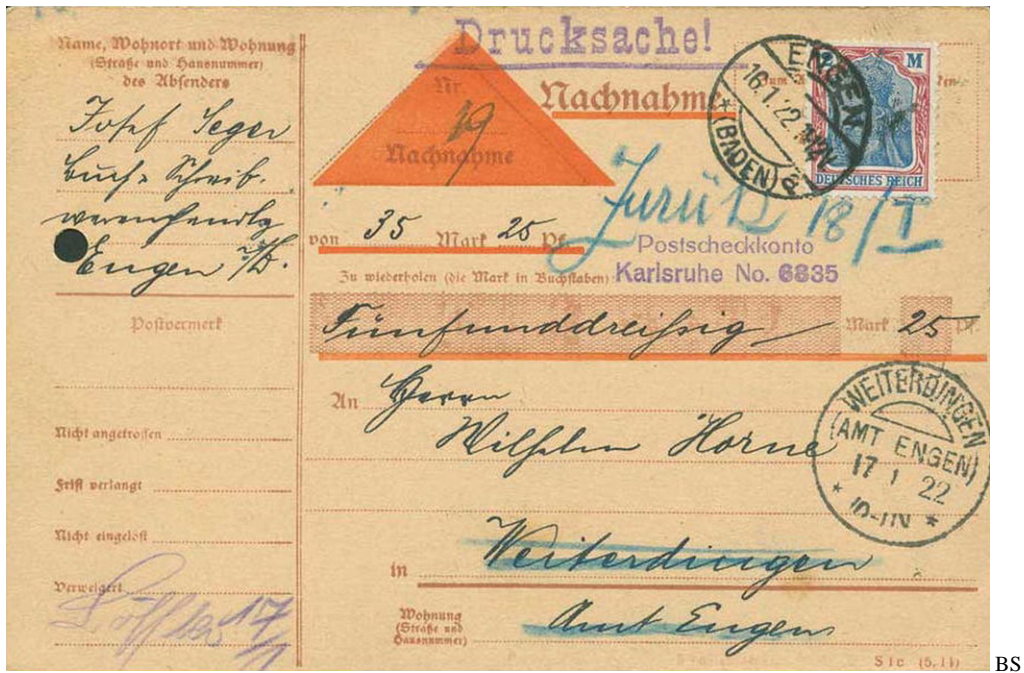 Drucksache!
Name, Wohnort und Wohnung
(Straße und Hausnummer)
des Absenders
Josef Seger
Buch= Schreib-
Engen i/B.
Postvermerk
Nicht angetroffen
Frist verlangt
Nicht eingelöst
Verweigert
17/1
Nr.
19
Nachnahme
Nachnahme
ENGEN
16.1.22
(BADEN)
2 M
DEUTSCHES REICH
Zurück 18/I
von 35 Mark 25 Pf.
Postscheckkonto
Karlsruhe No. 6835
Zu wiederholen (die Mark in Buchstaben):
Fünfunddreißig Mark 25 Pf.
An Herrn
Wilhelm Horne
WEITERDINGEN
(AMT ENGEN)
17 1 22
10-11N
in Weiterdingen
Wohnung
(Straße und
Hausnummer)
Amt Engen
Sie (5.11)
BS